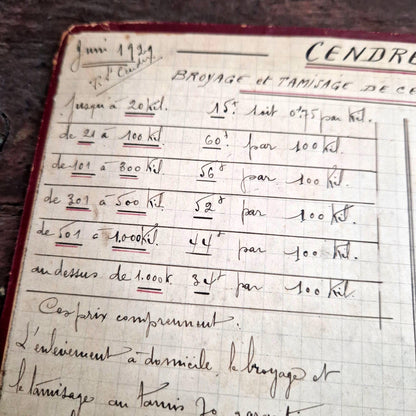 Juin 1929
CENDRE
BROYAGE et TAMISAGE DE CE
Jusqu'à 20 Kil. 15f soit 0f75 par Kil.
de 21 à 100 Kil. 60f par 100 Kil.
de 101 à 300 Kil. 56f par 100 Kil.
de 301 à 500 Kil. 52f par 100 Kil.
de 501 à 1.000 Kil. 44f par 100 Kil.
au dessus de 1.000 K. 34f par 100 Kil.
Ces prix comprennent.
L'enlèvement à domicile, le broyage et
le tamisage au tamis 70